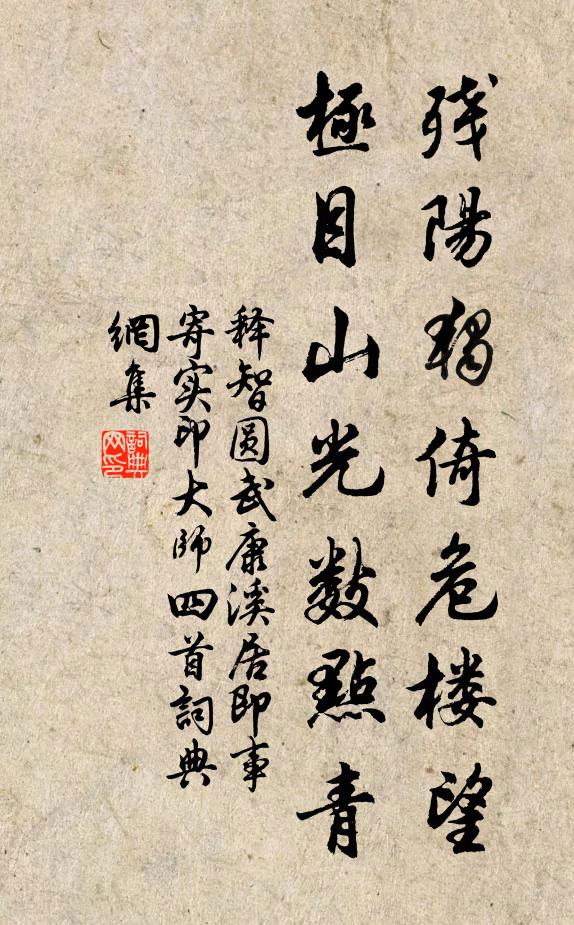 残陽獨倚危楼望
極目山光數點青
释智圓武康溪居即事
寄实印大师四首詞典
網集
詞典網印